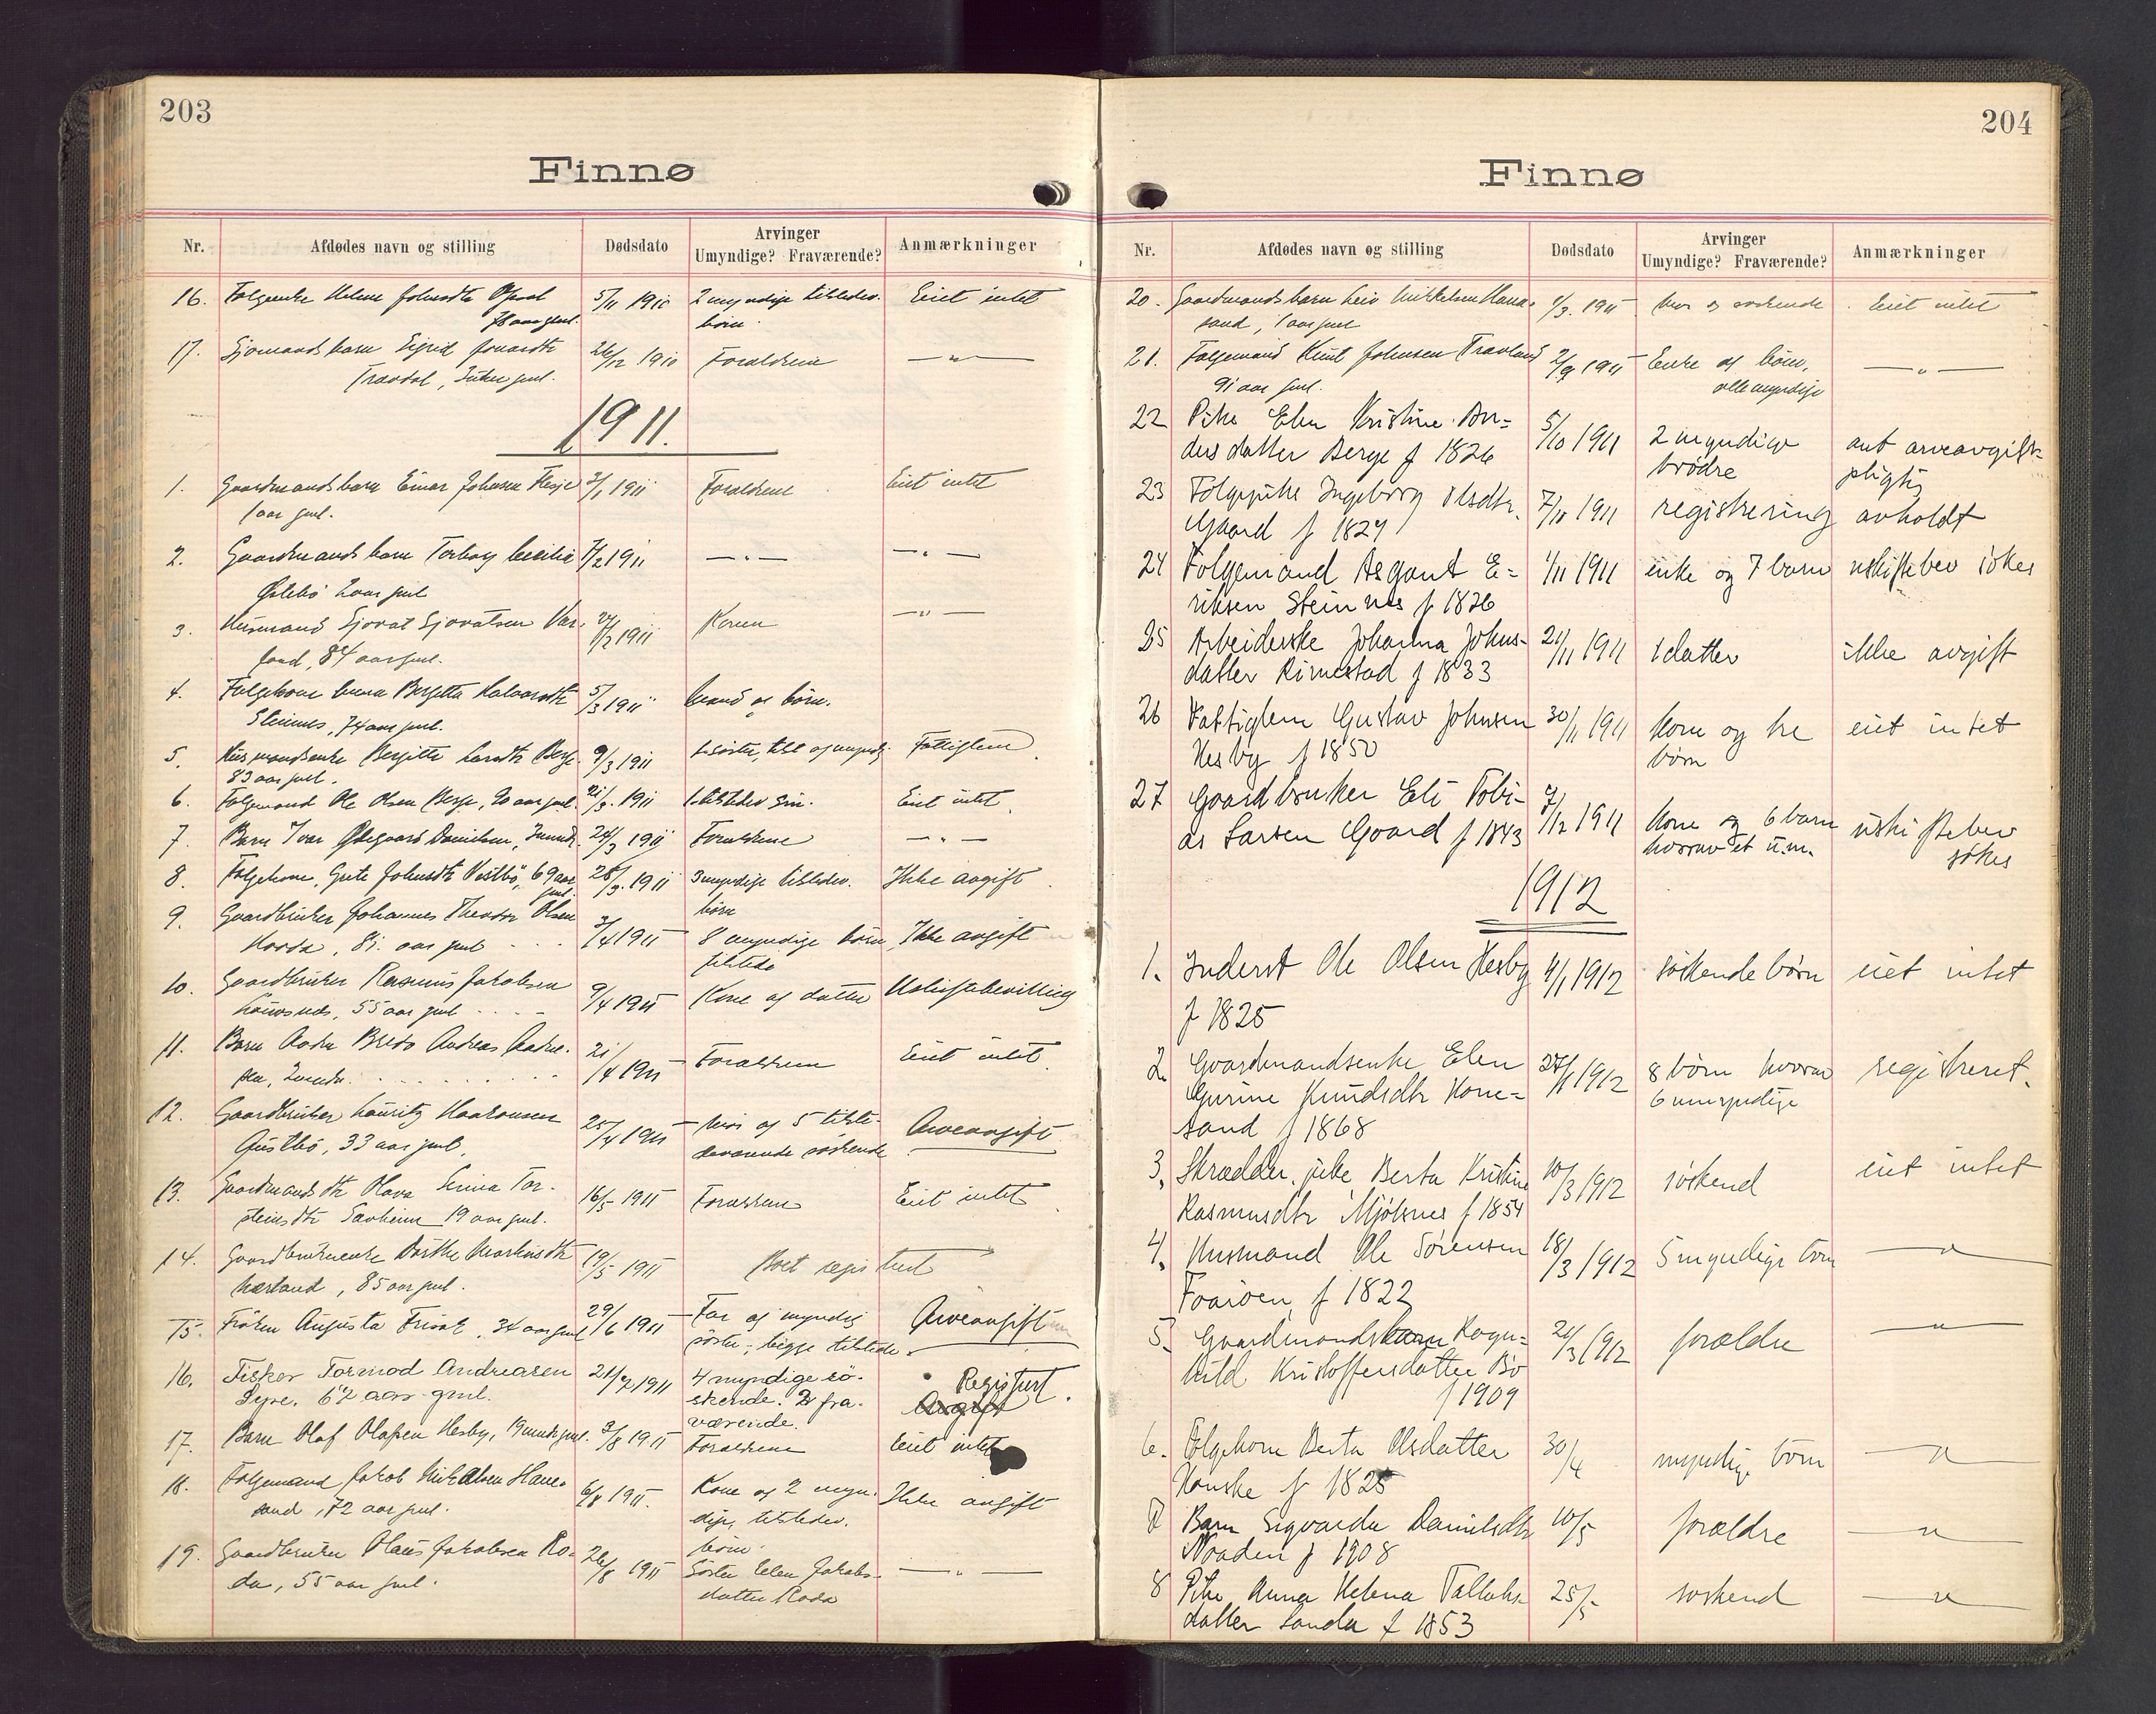 203
Finnø
Nr. Afdødes navn og stilling Dødsdato Arvinger Umyndige? Fraværende? Anmærkninger
16. Folgeenke Helene Johnsdtr 5/11 1910 2 myndige tilstedev. Eiet intet
78 aar gml. børn.
17. Sjømands barn Sigrid 26/12 1910 Forældrene — " —
gml.
1911.
1. Gaardmands barn Einar Johnsen Hesje 3/1 1911 Forældrene Eiet intet
1 aar gml.
2. Gaardmands barn Torborg Cecilie 7/2 1911 — " — — " —
2 aar gml
3. Husmand Sjovat Sjovatsen Var- /2 1911 Konen — " —
land, 84 aar gml.
4. Folgekone Bergitta Halvorsdtr 5/3 1911 Mand og børn.
Steinnes, 74 aar gml.
5. Husmandsenke Bergitte Larsdtr Berge 9/3 1911 1 søster, tilst og myndig Fattiglem
83 aar gml.
6. Folgemand Ole Olsen Berge, 90 aar gml. 21/3. 1911 1 tilstedev søn. Eiet intet
7. Barn Ivar Ødegaard Danielsen, 24/3 1911 Forældrene — " —
8. Folgekone, Grete Johnsdtr Vestbø, 69 aar 28/3. 1911 3 myndige tilstedev. Ikke avgift
gml. børn
9. Gaardbruker Johannes Theodor Olsen 3/4 1911 8 myndige børn, Ikke avgift
81. aar gml tilstede
10. Gaardbruker Rasmus Jakobsen 9/4 1911 Kone og datter Uskiftebevilling
55 aar gml
11. Barn Bredo Andreas 21/4 1911 Forældrene Eiet intet
12. Gaardbruker Lauritz Haakonsen 25/4 1911 Mor og 5 tilste-
33 aar gml. deværende søskende Arveavgift
13. Gaardmandsdtr Olava Serina Tor- 16/5 1911 Forældrene Eiet intet
steinsdtr 19 aar gml.
14. Gaardbrukerenke Dorthe Martinsdtr 19/5 1911 Boet registrert
85 aar gml.
15. Frøken Augusta 34 aar gml 29/6 1911 Far og myndig Arveavgift
søster, begge tilstede
16. Fisker Tormod Andreasen 21/7 1911 4 myndige sø- Registrert.
62 aar gml. skende. 2 fra- Avgift
værende.
17. Barn Olaf Olafsen Hesby, 19 mndr gml. 3/8 1911 Forældrene Eiet intet
18. Folgemand Jakob Mikkelsen Hane- 6/8 1911. Kone og 2 myn- Ikke avgift
sand, 72 aar gml. dige, tilstedev.
børn.
19. Gaardbruker Olaus Jakobsen Ro- 26/8 1911 Søster Elen Jakobs- — " —
da, 55 aar gml. datter Roda
204
Finnø
Nr. Afdødes navn og stilling Dødsdato Arvinger Umyndige? Fraværende? Anmærkninger
20. Gaardmands barn Leiv Mikkelsen Hane- /3. 1911 Mor og søskende Eiet intet
sand, 1 aar gml
21. Folgemand Knut Johnsen 2/9 1911 Enke og børn, — " —
91 aar gml. alle myndige
22 Pike Elen Kristine An= 5/10 1911 2 myndige ant arveavgift-
dersdatter Berge f 1826 brødre pligtig
23 Folgepike Ingeborg Olsdtr. 7/10 1911 registrering avholdt
Gaard f 1827
24 Folgemand Asgaut E= 1/11 1911 enke og 7 barn uskiftebev søkes
riksen Steinnes f 1826
25 Arbeiderske Johanna Johns- 21/11 1911 1 datter ikke avgift
datter Rimestad f 1833
26 Fattiglem Gustav Johnsen 30/11 1911 Kone og tre eiet intet
Hesby f 1850 børn
27 Gaardbruker Eli Tobi- 7/12 1911 Kone og 6 barn uskiftebev
as Larsen Gaard f 1843 hvorav et um. søkes
1912
1. Inderst Ole Olsen Hesby 4/1 1912 søskendebørn eiet intet
f 1825
2. Gaardmandsenke Elen 27/1 1912 8 børn hvorav registreret.
Gurine Knudsdtr Hane= 6 umyndige
sand f 1868
3. Skrædder.pike Berta Kristine 10/3 1912 søskend eiet intet
Rasmusdtr Mjølsnes f 1854
4. Husmand Ole Sørensen 18/3 1912 5 myndige børn — " —
f 1822
5. Gaardmandsbarn Ragn= 21/3 1912 forældre — " —
hild Kristoffersdatter Bø
f 1909
6. Folgekone Berta Olsdatter 30/4 myndige børn — " —
f 1825
7 Barn Sigvarda Danielsdtr 10/5 forældre — " —
Naaden f 1908
8 Pike Anna Helena Tolleks- 25/5 søskend — " —
datter Sanda f 1853